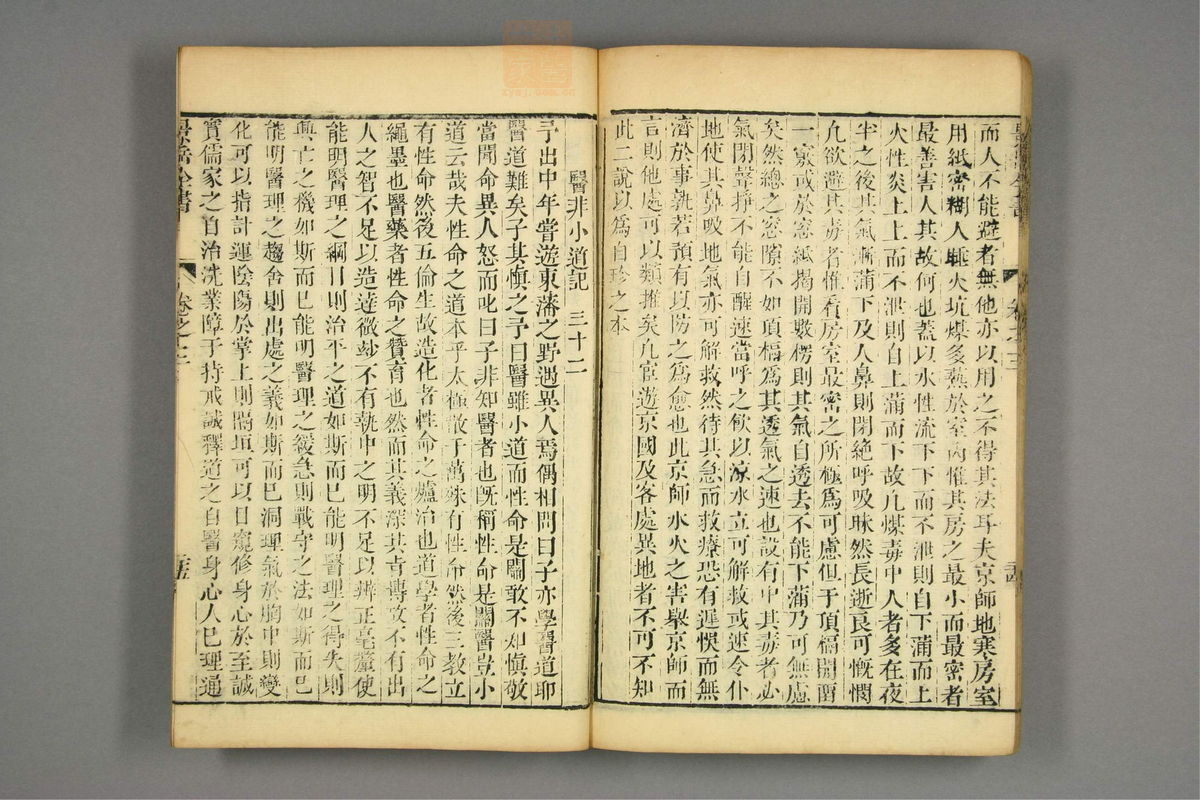 而人不能避者無他亦以用之不得其法耳夫京師地寒房室
用紙密糊人睡火坑煤多爇於室內惟其房之最小而最密者
最善害人其故何也蓋以水性流下下而不泄則自下滿而上
火性炎上上而不泄則自上滿而下故凡煤毒中人者多在夜
半之後其氣漸滿下及人鼻則閉絕呼吸昧然長逝良可慨憫
凡欲避其毒者惟看房室最密之所極爲可慮但于頂槅開留
一竅或於窓紙揭開數楞則其氣自透去不能下滿乃可無慮
矣然總之窓隙不如頂槅爲其透氣之速也設有中其毒者必
氣閉聲掙不能自醒速當呼之飲以涼水立可解救或速令仆
地使其鼻吸地氣亦可解救然待其急而救療恐有遲悞而無
濟於事孰若預有以防之爲愈也此京師水火之害舉京師而
言則他處可以類推矣凡宦遊京國及客處異地者不可不知
此二說以爲自珍之本
醫非小道記 三十二
予出中年嘗遊東藩之野遇異人焉偶相問曰子亦學醫道耶
醫道難矣子其慎之予曰醫雖小道而性命是關敢不知慎敬
當聞命異人怒而叱曰子非知醫者也旣稱性命是關醫豈小
道云哉夫性命之道本乎太極散于萬殊有性命然後三教立
有性命然後五倫生故造化者性命之爐冶也道學者性命之
繩墨也醫藥者性命之贊育也然而其義深其旨博故不有出
人之智不足以造達微妙不有執中之明不足以辨正毫釐使
能明醫理之綱目則治平之道如斯而已能明醫理之得失則
興亡之機如斯而已能明醫理之緩急則戰守之法如斯而已
能明醫理之趨舍則出處之義如斯而已洞理氣於胸中則變
化可以指計運陰陽於掌上則隔垣可以目窺修身心於至誠
實儒家之自治洗業障于持戒誠釋道之自醫身心人已理通
景岳全書
卷之三